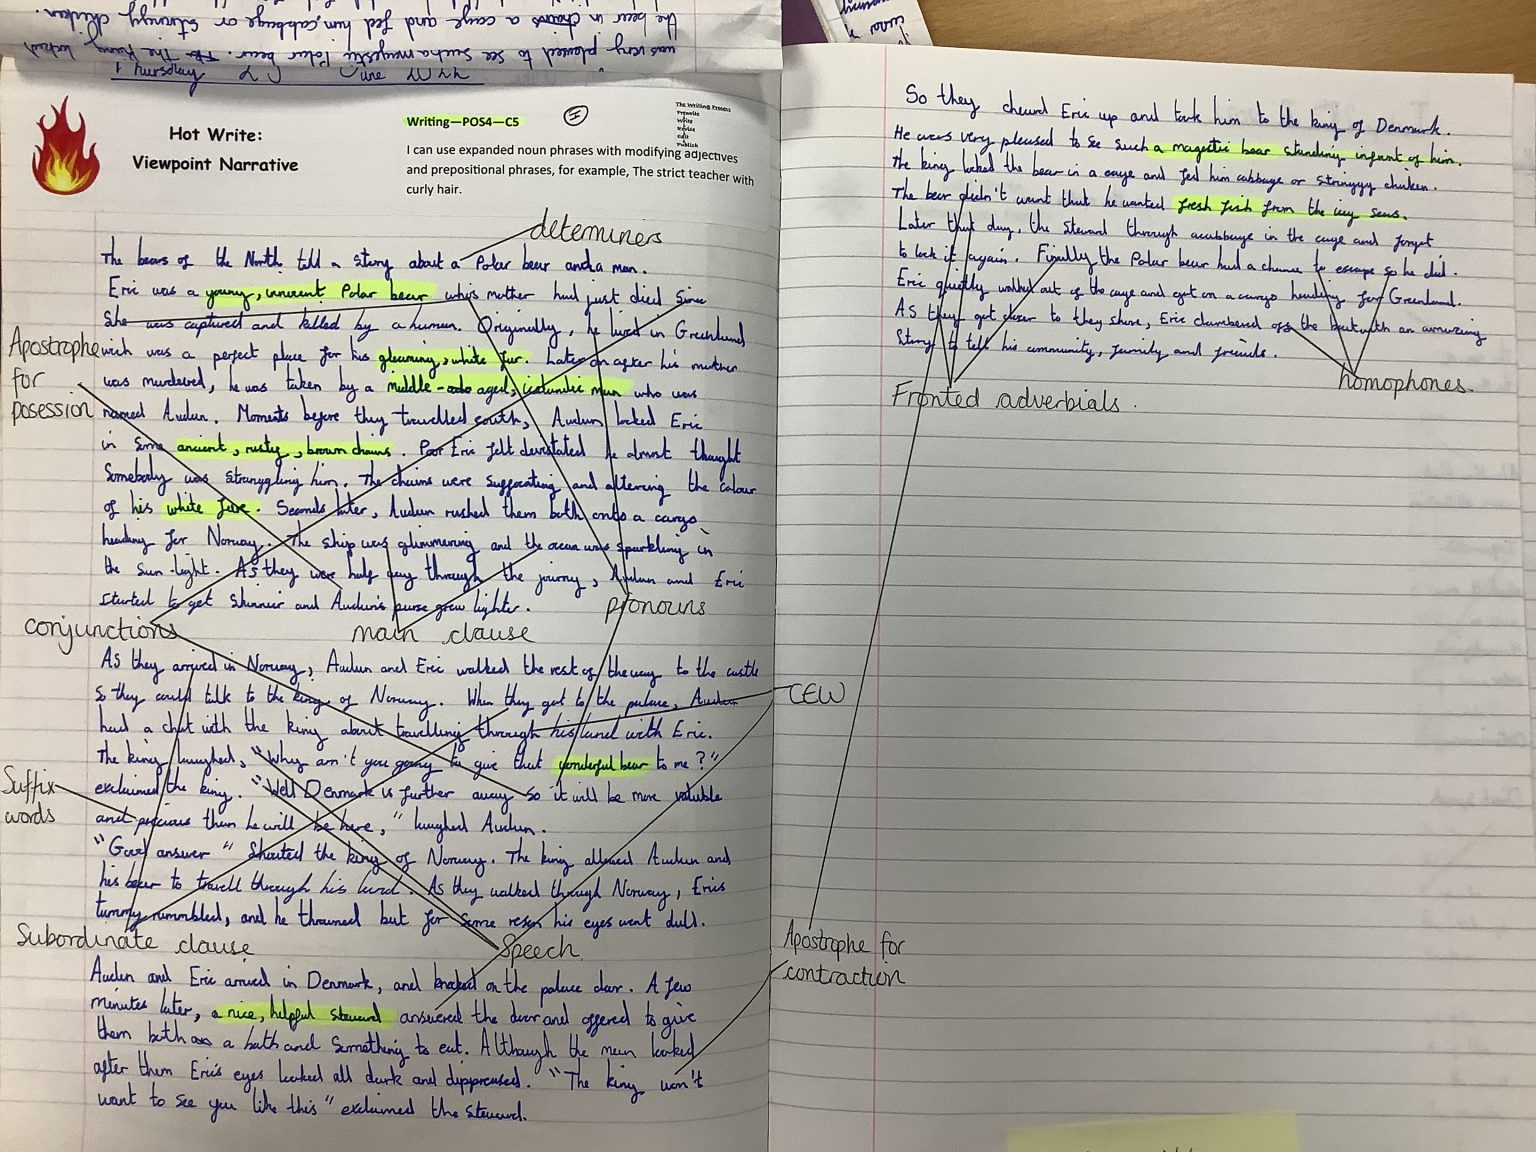 was very pleased to see such a majestic Polar bear. The king locked
the bear in a cage and fed him, cabbage or stringy chicken.
Thursday
Hot Write:
Viewpoint Narrative
Writing—POS4—C5
I
The Writing Process
Prewrite
Write
Revise
Edit
Publish
I can use expanded noun phrases with modifying adjectives
and prepositional phrases, for example, The strict teacher with
curly hair.
determiners
The bears of the North told a story about a Polar bear and a man.
Eric was a young, innocent Polar bear who's mother had just died since
She was captured and killed by a human. Originally, he lived in Greenland
Apostrophe for posession
wich was a perfect place for his gleaming, white fur. Later on after his mother
was murdered, he was taken by a middle - aged, icelandic man who was
named Audun. Moments before they travelled south, Audun locked Eric
in some ancient, rusty, brown chains. Poor Eric felt devistated he almost thought
Somebody was stranggling him. The chains were suffocating and altering the colour
of his white fure. Seconds later, Audun rushed them both onto a cargo
heading for Norway. The ship was glimmering and the ocean was sparkling in
the sun light. As they were half way through the journey, Audun and Eric
started to get skinnier and Audun's purse grew lighter.
pronouns
conjunctions
main clause
As they arrived in Norway, Audun and Eric walked the rest of the way to the castle
so they could talk to the king of Norway. When they got to the palace, Audun
CEW
had a chat with the king about travelling through his land with Eric.
The king laughed, "Why arn't you going to give that wonderful bear to me?"
Suffix words
exclaimed the king. "Well Denmark is further away so it will be more valuble
and precious than he will be here," laughed Audun.
"Good answer" Shouted the king of Norway. The king allowed Audun and
his bear to travell through his land. As they walked through Norway, Erics
tummy rummbled, and he but for some reson his eyes went dull.
Subordinate clause
Speech
Audun and Eric arrived in Denmark, and knocked on the palace door. A few
minutes later, a nice, helpful steward answered the door and offered to give
them both a bath and something to eat. Although the man looked
after them Eric's eyes looked all dark and dippressed. "The king won't
want to see you like this" exclaimed the steward.
So they cheured Eric up and took him to the king of Denmark.
He was very pleased to see such a magestic bear standing infrunt of him.
The king locked the bear in a cage and fed him cabbage or stringyy chicken.
The bear didn't want that he wanted fresh fish from the icy seas.
Later that day, the steward through a cabbage in the cage and forgot
to lock it again. Finally the Polar bear had a chance to escape so he did.
Eric quietly walked out of the cage and got on a cargo heading for Greenland.
As they got closer to they shore, Eric clambered off the boat with an amazing
Story to tell his community, family and freinds.
homophones
Fronted adverbials.
Apostrophe for contraction